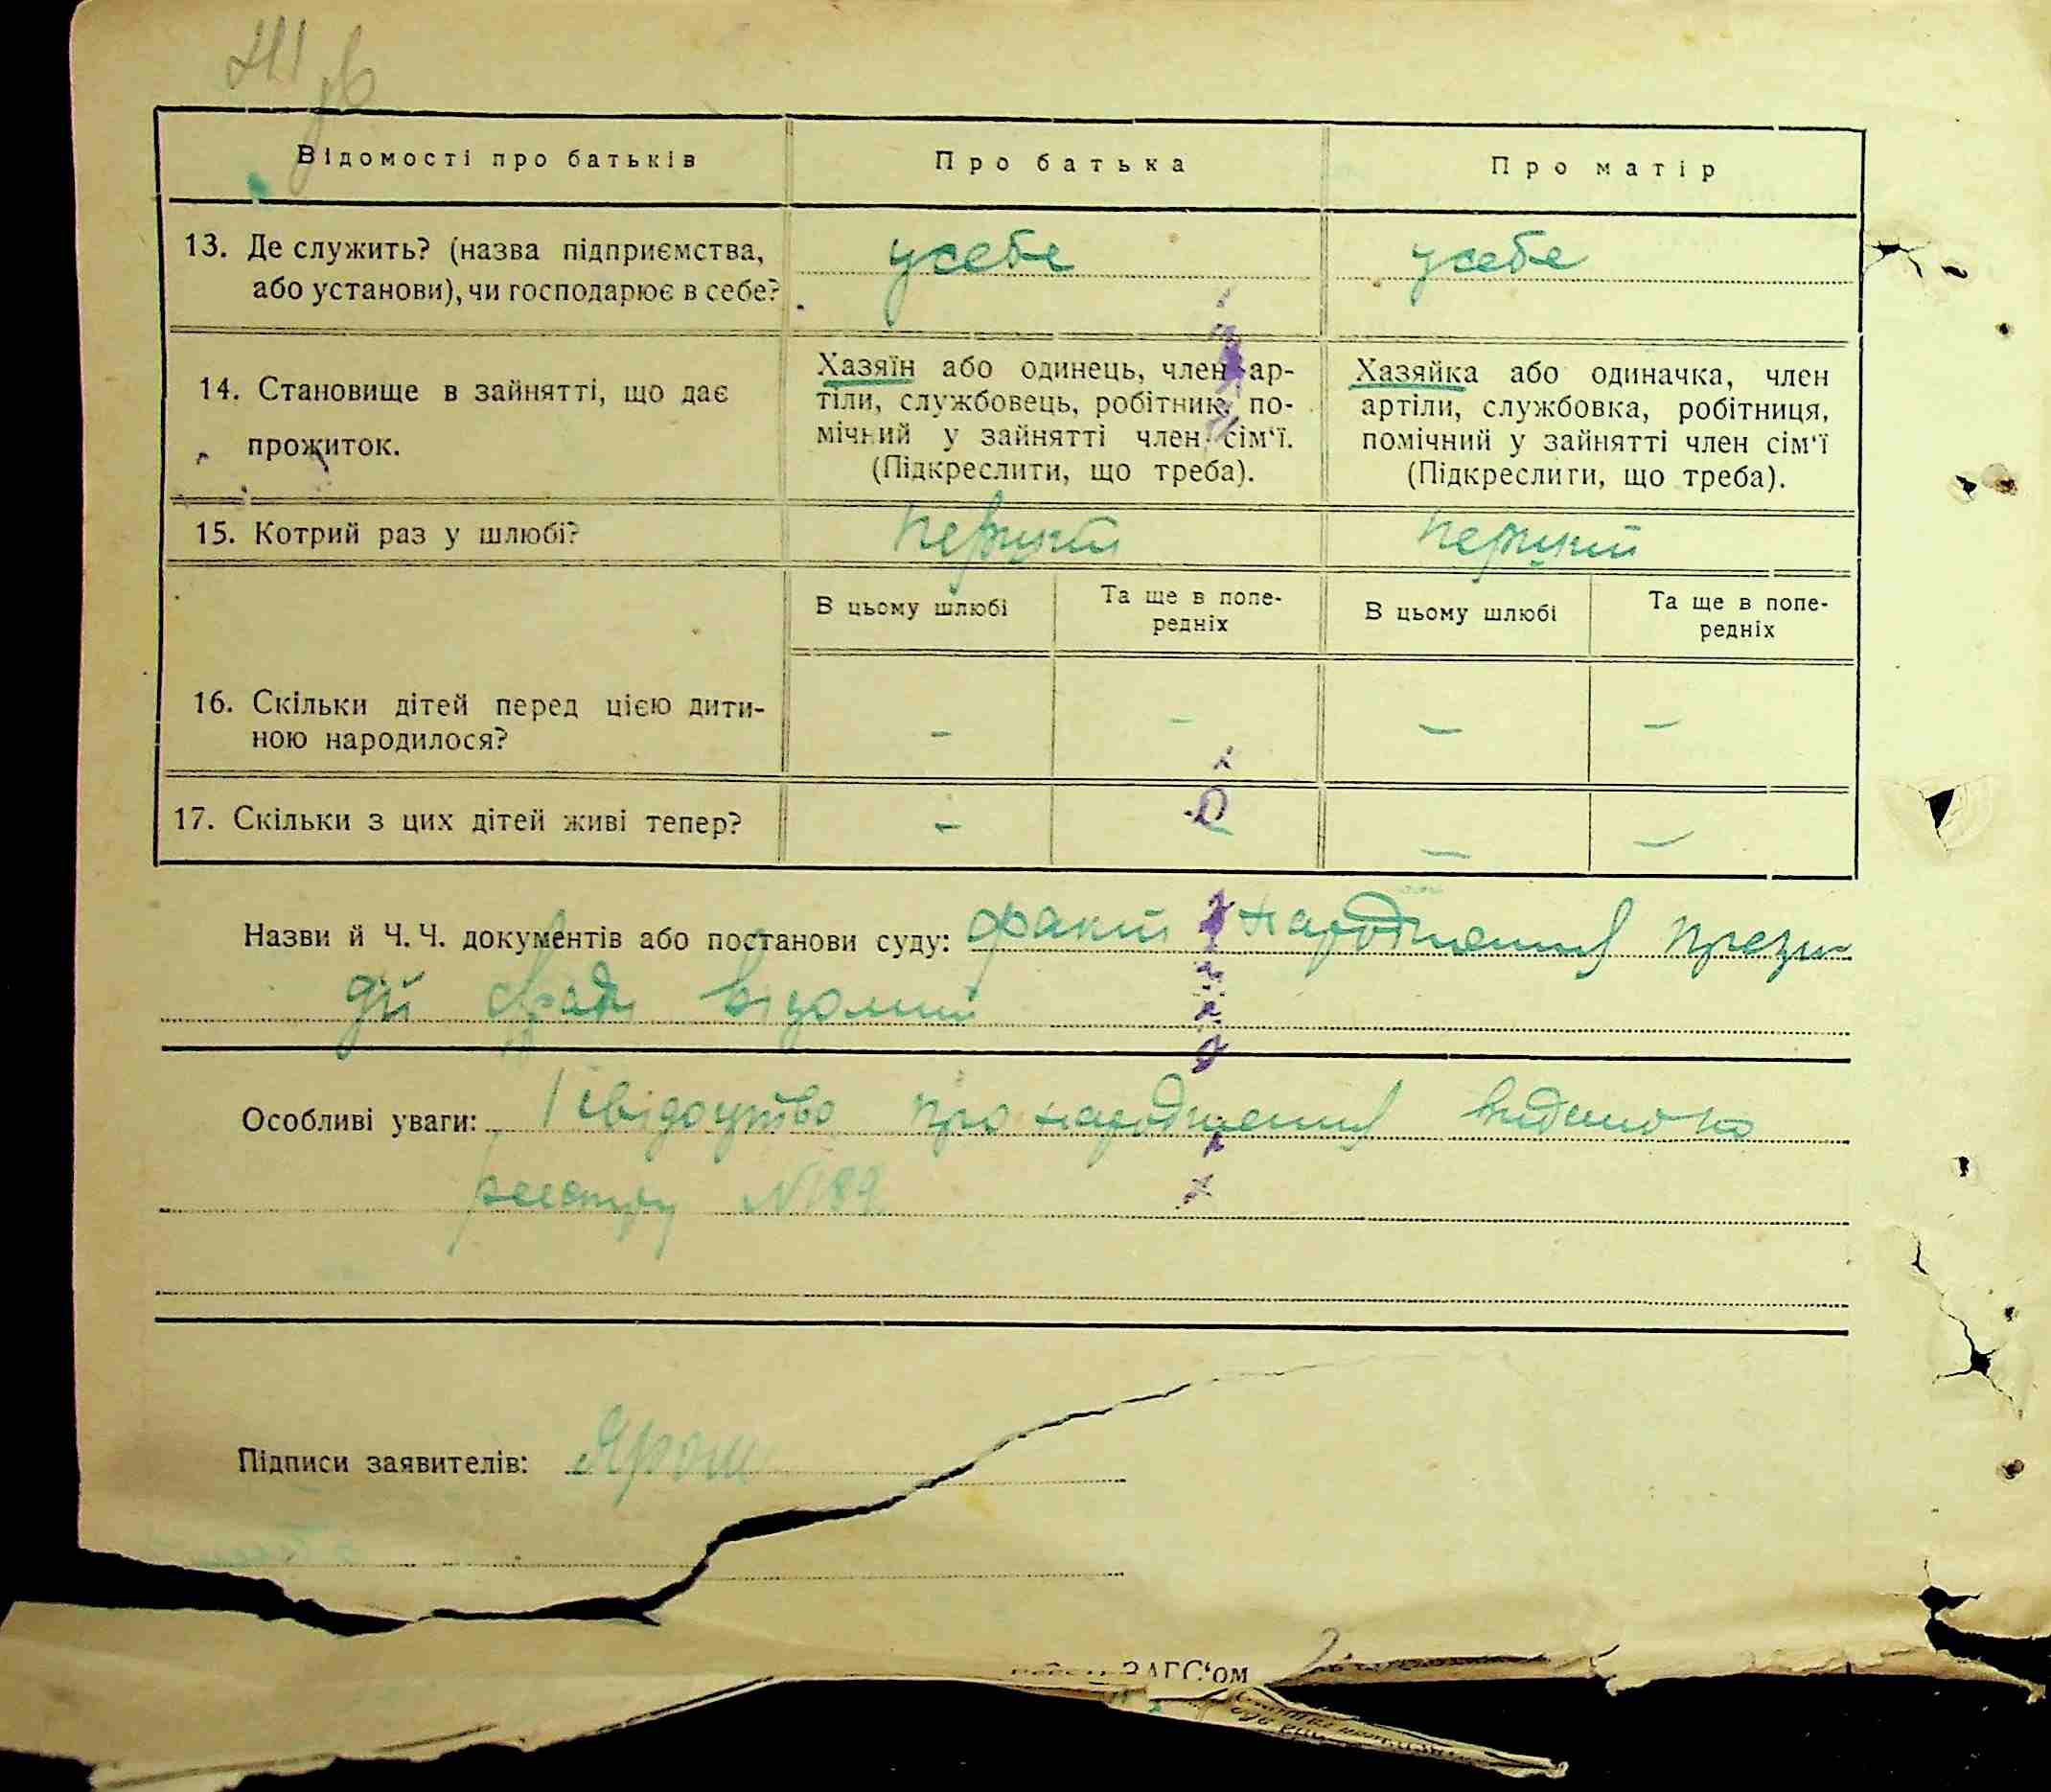 Відомості про батьків
Про батька
Про матір
13. Де служить? (назва підприємства,
або установи), чи господарює в себе?
усебе
усебе
14. Становище в зайнятті, що дає
прожиток.
Хазяїн або одинець, член ар-
тіли, службовець, робітник, по-
мічний у зайнятті член сім‘ї.
(Підкреслити, що треба).
Хазяйка або одиначка, член
артіли, службовка, робітниця,
помічний у зайнятті член сім‘ї
(Підкреслити, що треба).
15. Котрий раз у шлюбі?
перший
перший
В цьому шлюбі
Та ще в попе-
редніх
В цьому шлюбі
Та ще в попе-
редніх
16. Скільки дітей перед цією дити-
ною народилося?
–
–
–
–
17. Скільки з цих дітей живі тепер?
–
–
–
–
Назви й Ч. Ч. документів або постанови суду: факт народження прези
дії с/ради відомий
Особливі уваги: / свідоцтво про народження видано по
реєстру №189
Підписи заявителів: Ярош
ЗАГС‘ом